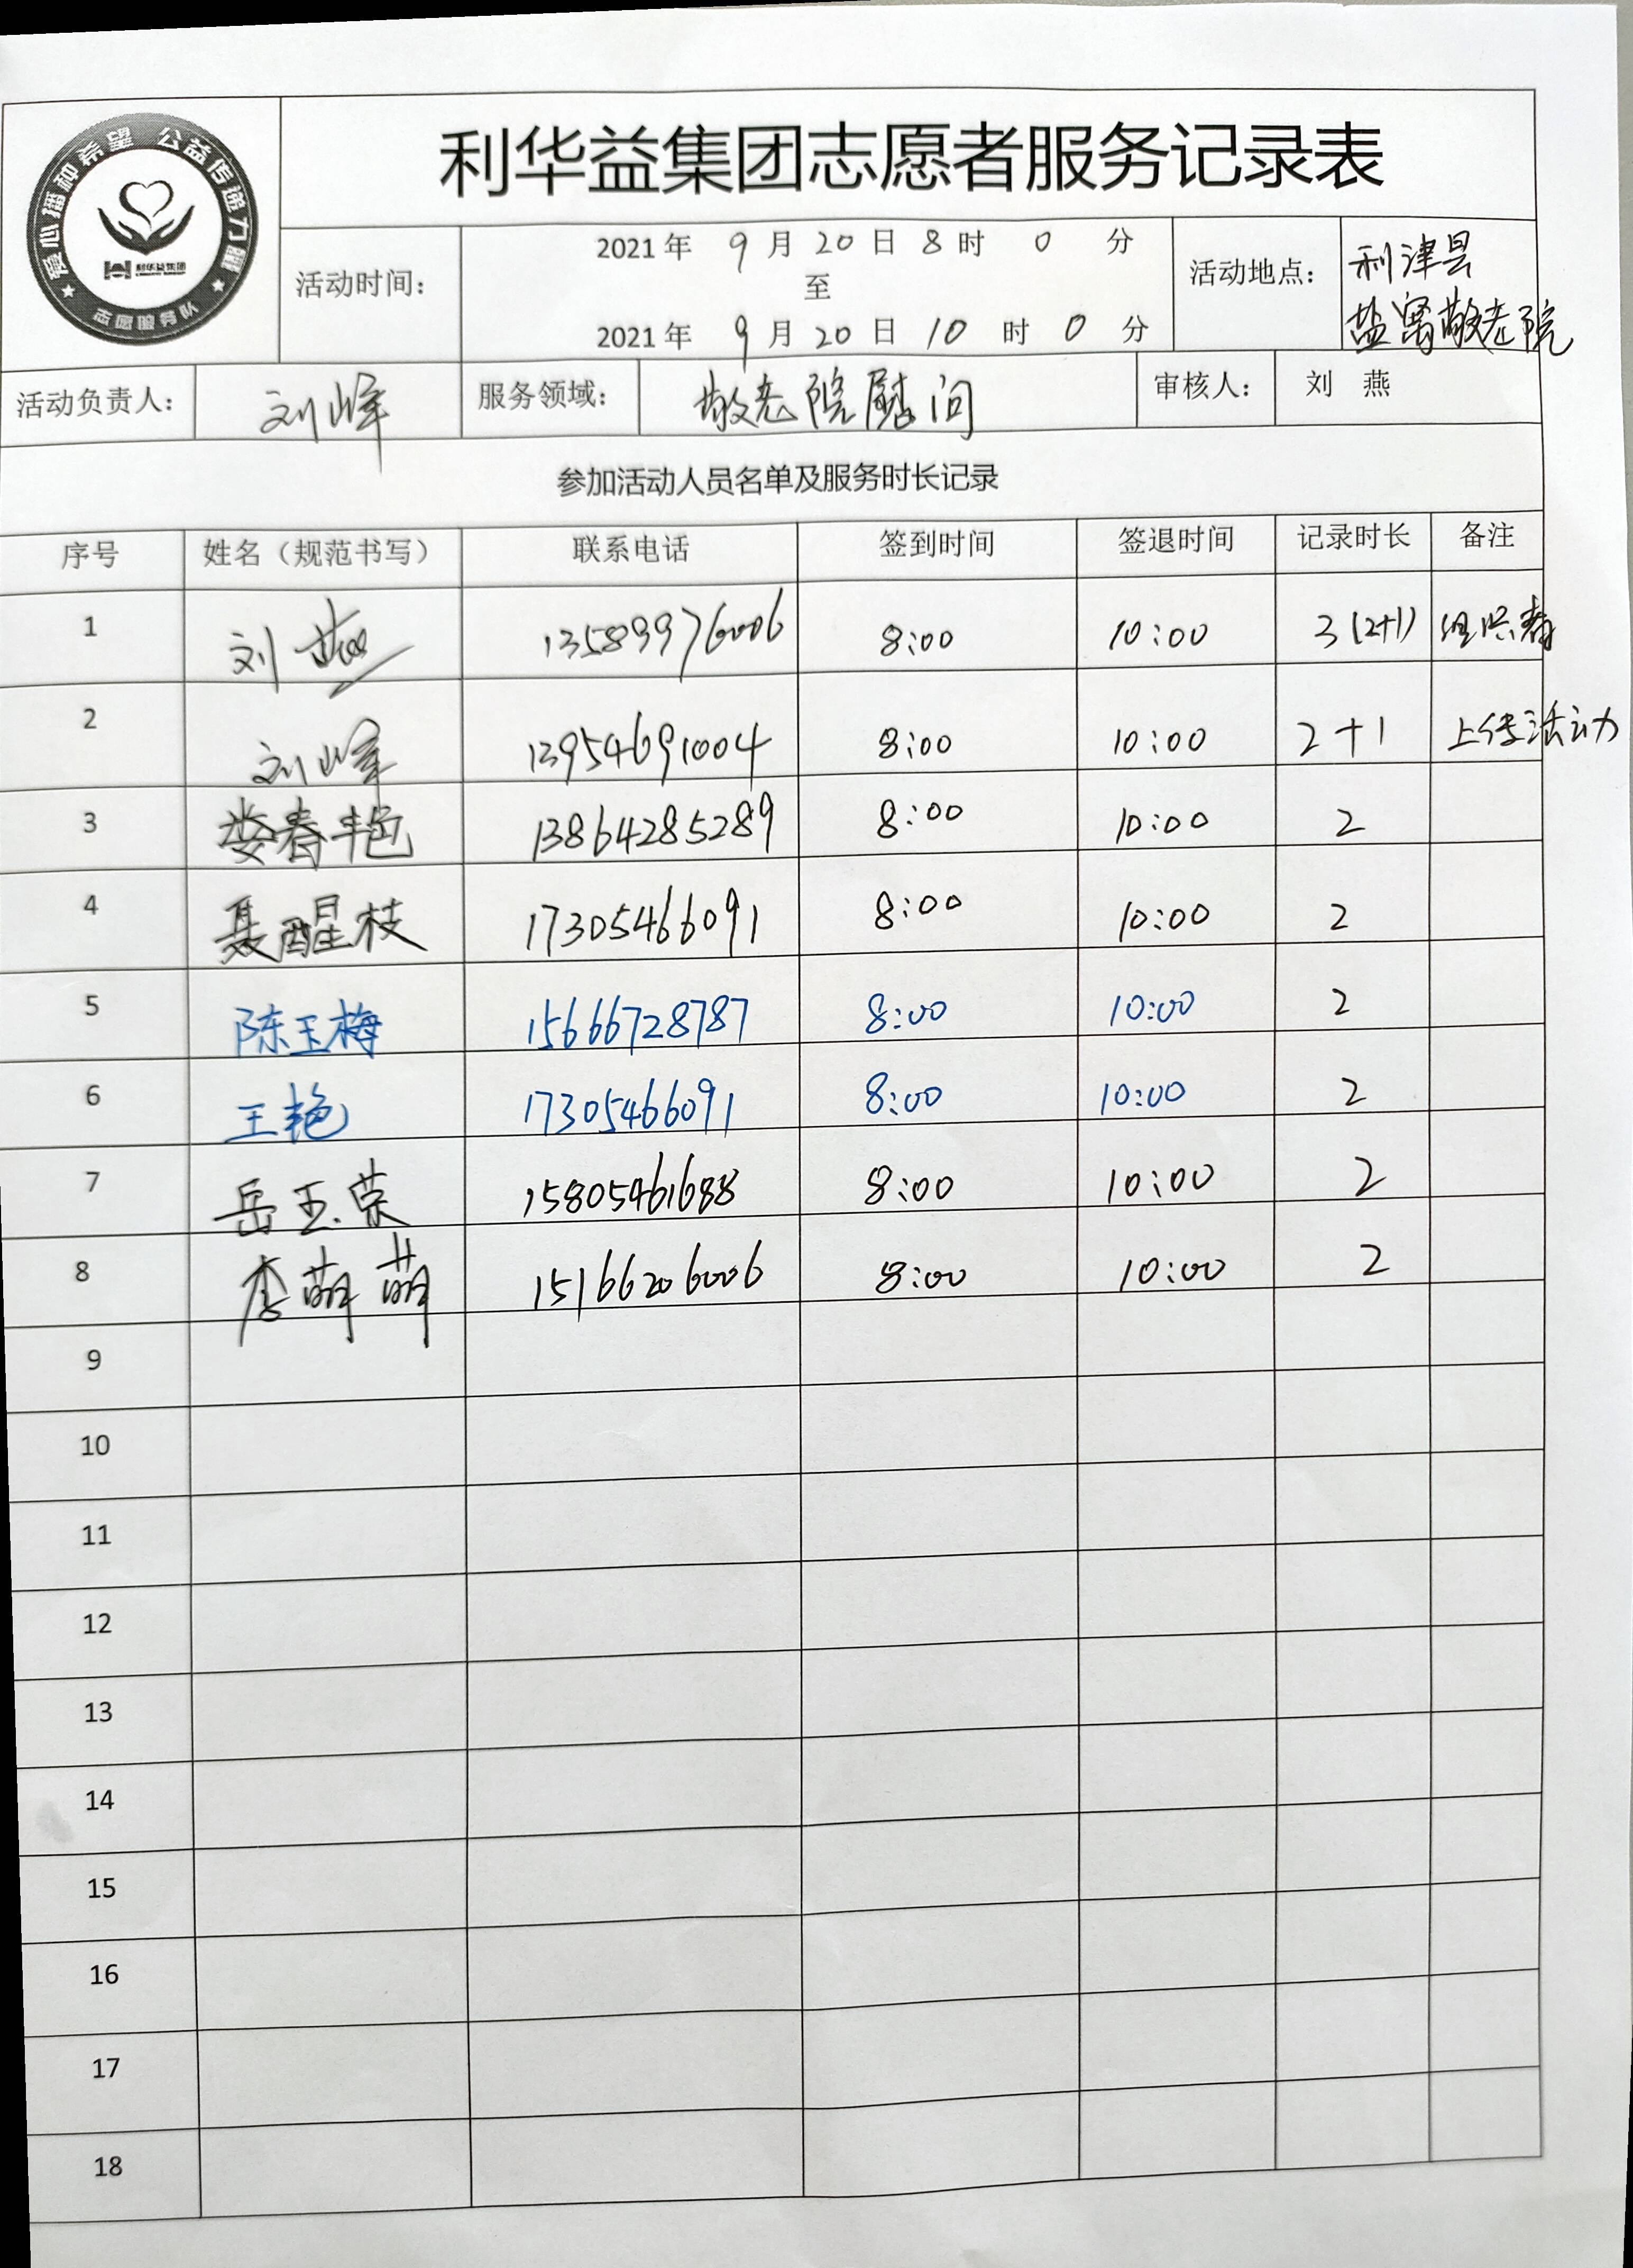 爱心播种希望 公益传递力量
利华益集团
志愿服务队
利华益集团志愿者服务记录表
活动时间： 2021年 9月20日8时 0 分
至
2021年 9月20日10时 0 分
活动地点： 利津县
盐窝敬老院
活动负责人： 刘峰 服务领域： 敬老院慰问 审核人： 刘 燕
参加活动人员名单及服务时长记录
序号 姓名（规范书写） 联系电话 签到时间 签退时间 记录时长 备注
1 刘燕 13589976006 8:00 10:00 3(2+1) 组织者
2 刘峰 13954691004 8:00 10:00 2+1 上传活动
3 娄春艳 13864285289 8:00 10:00 2
4 聂醒枝 17305466091 8:00 10:00 2
5 陈玉梅 15666728787 8:00 10:00 2
6 王艳 17305466091 8:00 10:00 2
7 岳玉荣 15805461688 8:00 10:00 2
8 李萌萌 15166206006 8:00 10:00 2
9
10
11
12
13
14
15
16
17
18